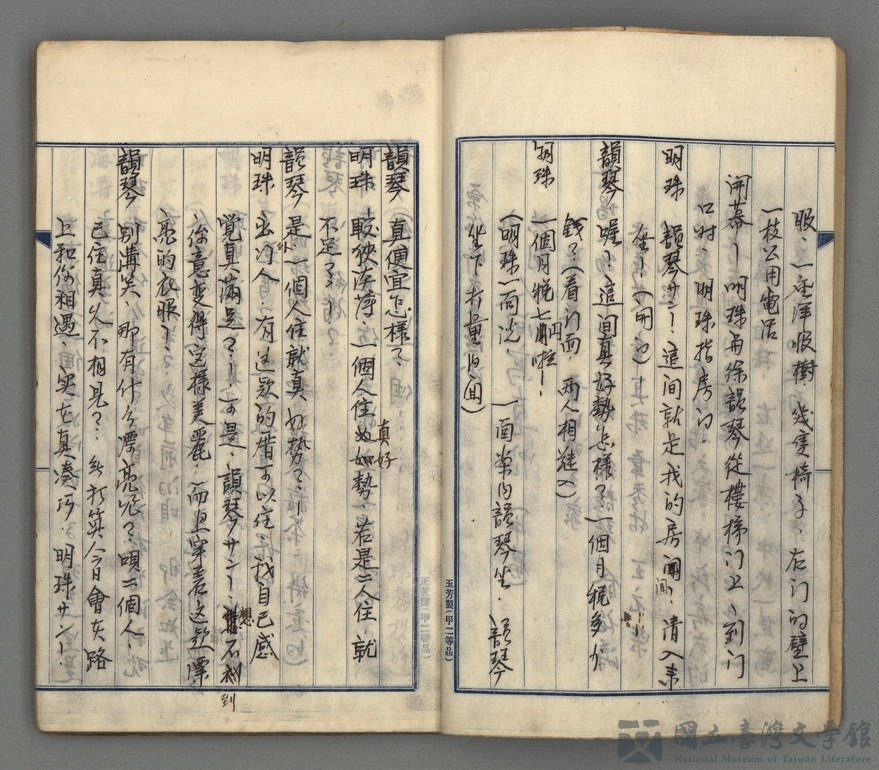 服，一座洋服樹，幾隻椅子，在门的壁上
一枝公用電话
開幕—明珠與徐韻琴從樓梯门上，到门
口时，明珠指房门。
明珠 韻琴サン！這间就是我的房间，请入来
坐！(開门)
韻琴 喔！這间真好勢怎樣？一個月稅多少
錢？(看门面，兩人相进入)
明珠 一個月稅七円啦！
(明珠一面洗 一面 韻琴坐，韻琴
坐下打量内面)
韻琴 真便宜怎樣？
明珠 較狹 一個人住真好勢，若是二人住，就
不足了！
韻琴 是外，一個人住就真好勢？！
明珠 出门人，有這款的厝可以住，我自己感
覺真滿足？！可是，韻琴サン！想不到
你意變得这樣美麗，而且穿着这款漂
亮的衣服！
韻琴 別講笑，那有什么漂亮呢？唄二個人，
已住真久不相見？，無打算今日會在路
上和你相遇，实在真湊巧，明珠サン！
玉芳製(甲二等品)
玉芳製(甲二等品)
國立臺灣文學館
National Museum of Taiwan Literature